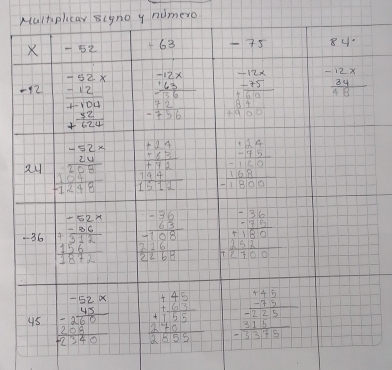 Multiplicar signo y número
X -52 63 -75 84
-12
-52 x
-12
+104
52
+624
-12x
63
-36
72
-756
-12x
-75
+60
84
+900
-12x
84
48
24
-52x
24
208
104
-1248
+24
+63
+72
144
1512
+24
-75
-120
168
-1800
-36
-52x
-36
+312
156
1872
-36
63
-108
216
2268
-36
-75
+180
252
+2700
45
-52x
45
-260
208
-2340
+45
+63
+135
270
2835
+45
-75
-225
315
-3375